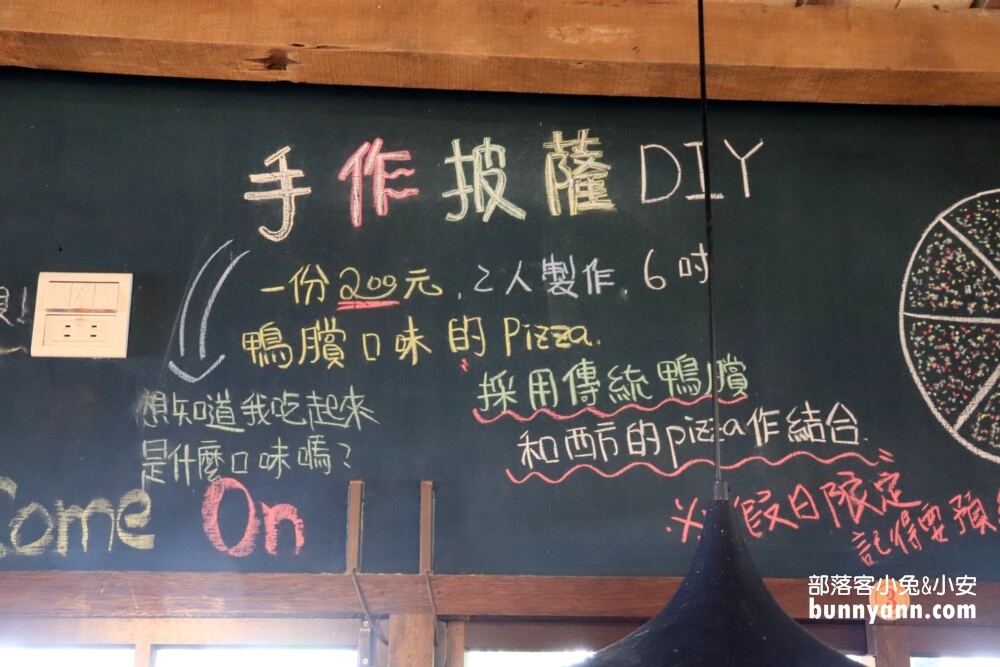 手作披薩DIY
一份200元,2人製作,6吋
鴨賞口味的Pizza.
"採用傳統鴨賞
和西方的pizza作結合."
想知道我吃起來
是什麼口味嗎?
Come On
※假日限定
記得要預
部落客小兔&小安
bunnyann.com